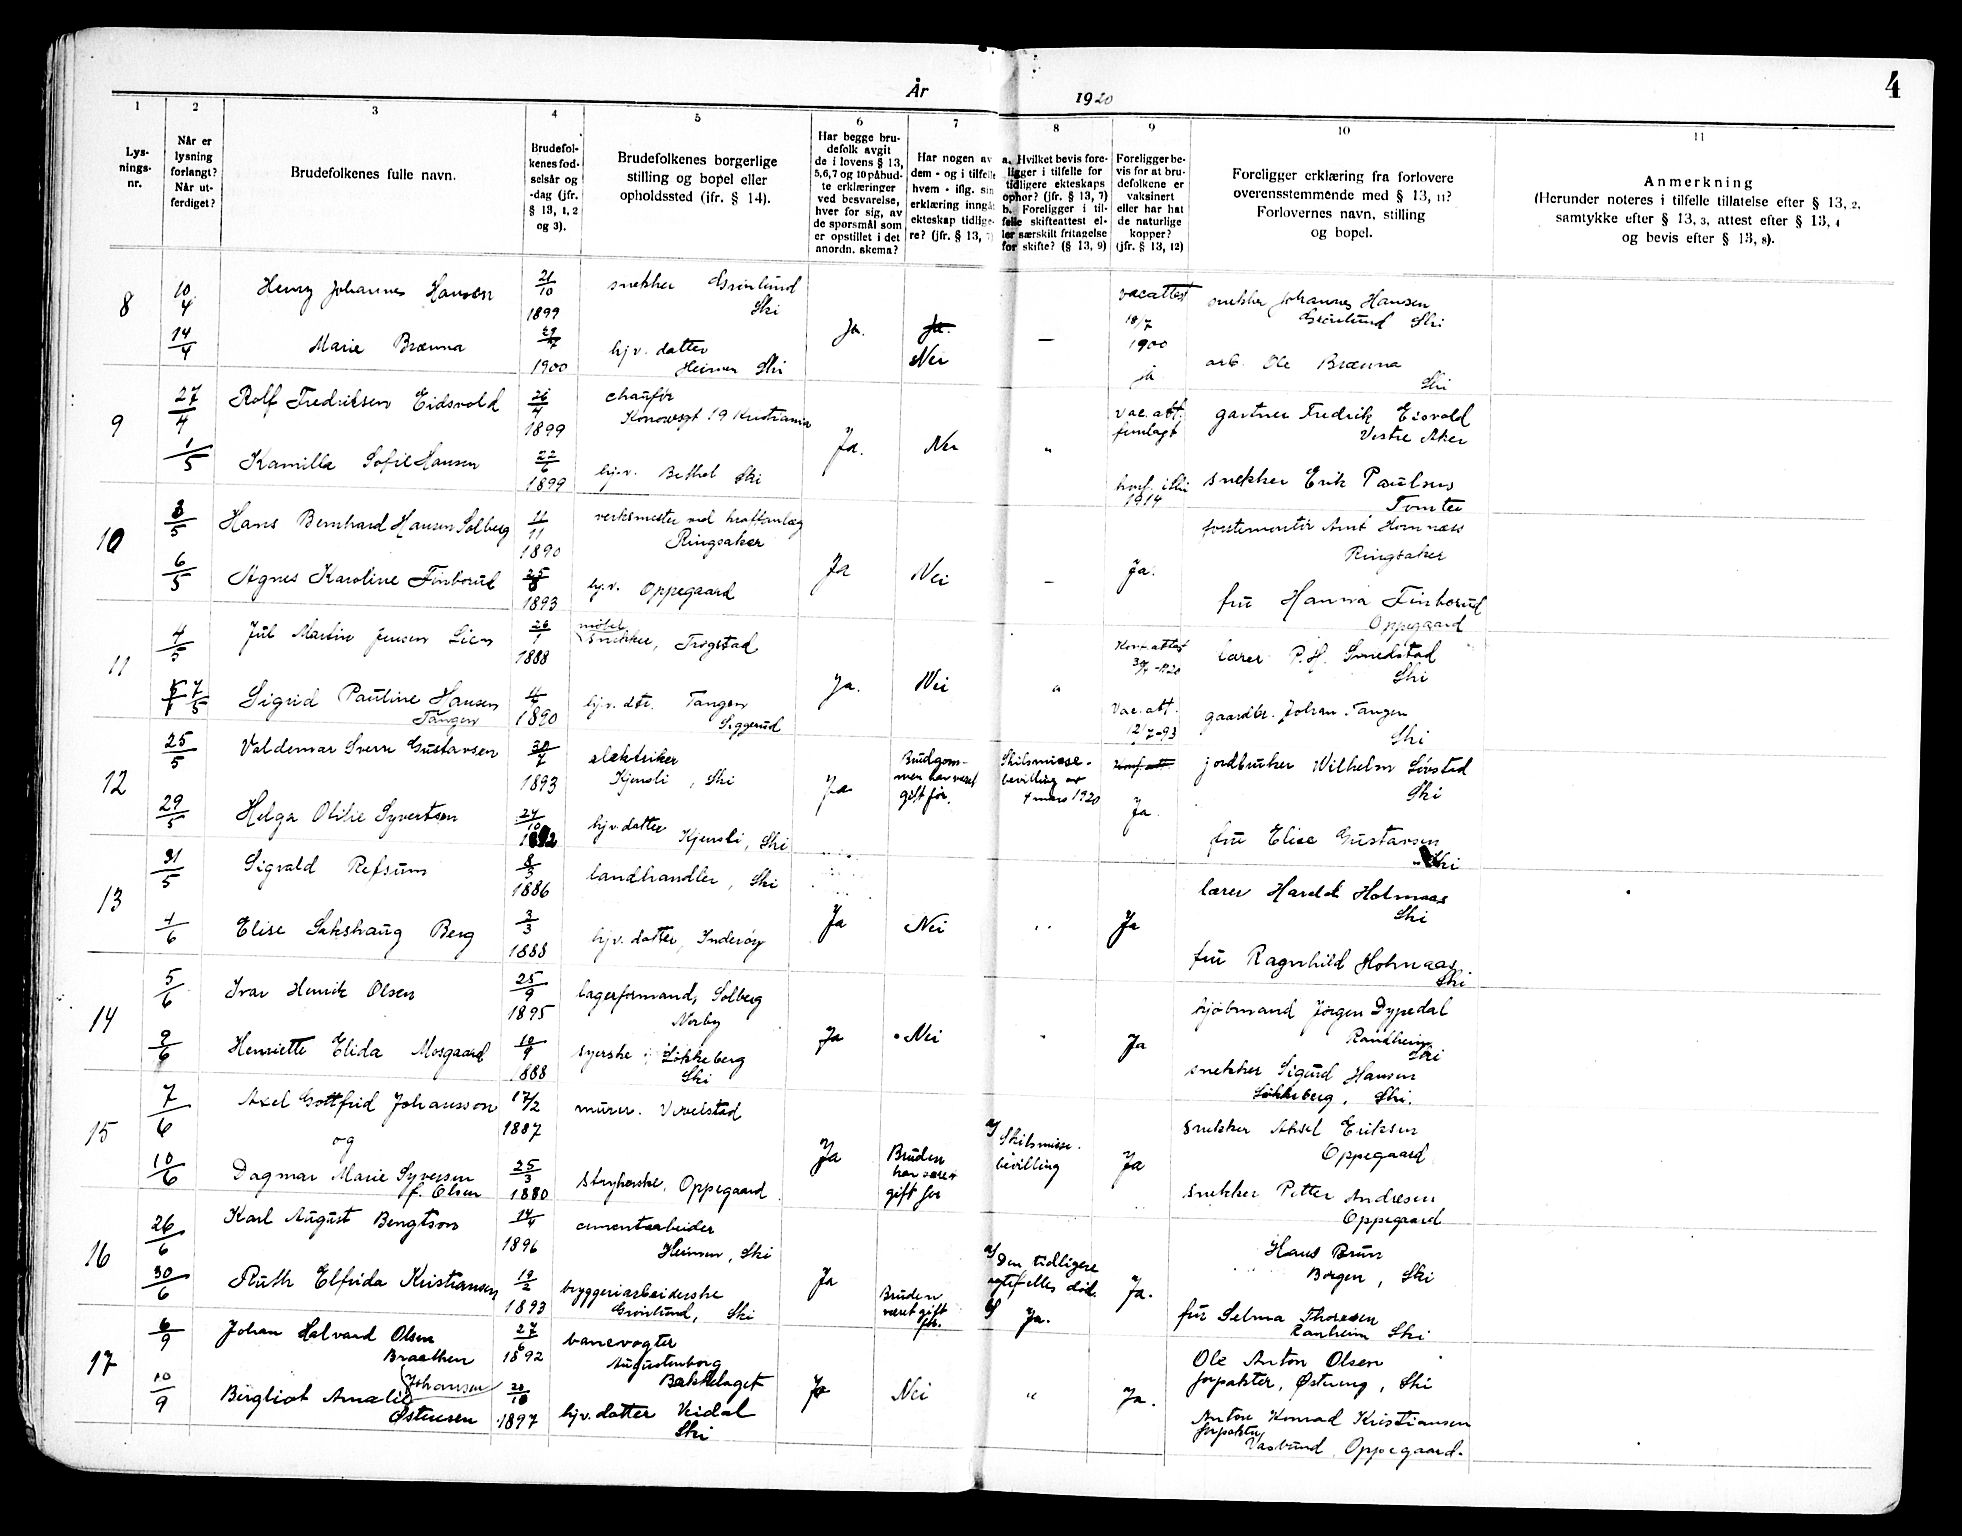 År 1920
4
1 2 3 4 5 6 7 8 9 10 11
Lys-
nings-
nr.
Når er
lysning
forlangt?
Når ut-
ferdiget?
Brudefolkenes fulle navn.
Brudefol-
kenes fød-
selsår og
-dag (jfr.
§ 13, 1, 2
og 3).
Brudefolkenes borgerlige
stilling og bopel eller
opholdssted (jfr. § 14).
Har begge bru-
defolk avgit
de i lovens § 13,
5,6,7 og 10 påbud-
te erklæringer
ved besvarelse,
hver for sig, av
de spørsmål som
er opstillet i det
anordn. skema?
Har nogen av
dem - og i tilfelle
hvem - iflg. sin
erklæring inngåt
ekteskap tidlige-
re? (jfr. § 13, 7)
a. Hvilket bevis fore-
ligger i tilfelle for
tidligere ekteskaps
ophør? (jfr. § 13, 7)
b. Foreligger i til-
felle skifteattest el-
ler særskilt fritagelse
for skifte? (§ 13, 9)
Foreligger be-
vis for at bru-
defolkene er
vaksinert
eller har hat
de naturlige
kopper?
(jfr. § 13, 12)
Foreligger erklæring fra forlovere
overensstemmende med § 13, 11?
Forlovernes navn, stilling
og bopel.
Anmerkning
(Herunder noteres i tilfelle tillatelse efter § 13, 2,
samtykke efter § 13, 3, attest efter § 13, 4
og bevis efter § 13, 8).
8
10/4
14/4
Henry Johannes Hansen
21/10
1899
snekker Grønlund
Ski
Marie Brænna
1900
hjv. datter
Heimen Ski
Ja.
Ja.
Nei
—
vacattest
18/7
1900
ja
snekker Johannes Hansen
Grønlund Ski
arb. Ole Brænna
Ski
9
27/4
1/5
Rolf Fredriksen Eidsvold
26/4
1899
chaufør
Konowsgt 19 Kristiania
Kamilla Sofie Hansen
22/6
1899
hjv. Bethel Ski
Ja.
Nei
"
vac. att.
fremlagt
konf. i Ski
1914
gartner Fredrik Eidsvold
Vestre Aker
snekker Erik Paulsen
Tomter
10
3/5
6/5
Hans Bernhard Hansen Solberg
11/11
1890
verksmester ved kraftanlæg
Ringsaker
Agnes Karoline Finborud
25/8
1893
hjv. Oppegaard
Ja
Nei
—
Ja.
Ringsaker
fru Hanna Finborud
Oppegaard
11
4/5
7/5
Jul Martin Jensen Lien
26/1
1888
møbel
snekker, Trøgstad
Sigrid Pauline Hansen
Tangen
1890
hjv. dtr. Tangen
Siggerud
Ja.
Nei
"
Konf. attest
Vac. att.
12/7-93
lærer P. H. Smedstad
Ski
gaardbr. Johan Tangen
Ski
12
25/5
29/5
Valdemar Sverre Gustavsen
30/7
1893
elektriker
Kjensli, Ski
Helga Otilie Syvertsen
24/10
hjv. datter
Kjensli, Ski
Ja
Brudgom-
men har været
gift før.
Skilsmisse-
bevilling av
4 mars 1920
Konf. att.
Ja.
jordbruker Wilhelm Løvstad
Ski
fru Elise Gustavsen
Ski
13
31/5
1/6
Sigvald Refsum
1886
landhandler, Ski
Elise Sakshaug Berg
3/3
1888
hjv. datter, Inderøy
Ja
Nei
Ja
lærer Harald Holmaas
Ski
fru Ragnhild Holmaas
Ski
14
5/6
9/6
Ivar Henrik Olsen
25/9
1895
lagerformand, Solberg
Nerby
Henriette Elida Mosgaard
10/9
1888
syerske, Løkkeberg
Ski
Ja
Nei
Ja
kjøbmand Jørgen Dypedal
Randheim
Ski
snekker Sigurd Hansen
Løkkeberg, Ski.
15
7/6
10/6
Axel Gottfrid Johansson
17/2
1887
murer. Vevelstad
og
Dagmar Marie Syversen
f. Olsen
25/3
1880
strykerske, Oppegaard
Ja
Bruden
har været
gift før
a) Skilsmisse-
bevilling
Ja
snekker Aksel Eriksen
Oppegaard
snekker Petter Andresen
Oppegaard
16
26/6
30/6
Karl August Bengtson
14/4
1896
cementarbeider
Heimen, Ski
Ruth Elfrida Kristiansen
19/2
1893
bryggeriarbeiderske
Grønlund, Ski
Ja
Bruden
været gift
før.
a) Den tidligere
egtefelles død.
b) Ja.
Ja.
Hans Brun
Borgen, Ski
fru Selma Thoresen
Ranheim Ski
17
6/9
10/9
Johan Halvard Olsen
Braathen
27/6
1892
banevogter
Augustenborg
Bakkelaget
Bergliot Amalie Johansen
Østensen
20/10
1897
hjv. datter Veidal
Ski
Ja
Nei
"
Ja.
Ole Anton Olsen
forpakter, Østeng, Ski
Anton Konrad Kristiansen
forpakter
Vasbund, Oppegaard.